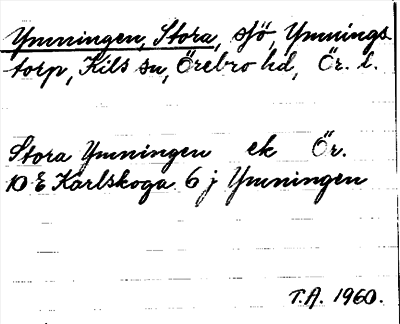 Ymningen, Stora, sjö, Ymnings-
torp, Kils sn, Örebro hd, Ör. l.
Stora Ymningen ek Ör.
10 E Karlskoga 6 j Ymningen
T.A. 1960.